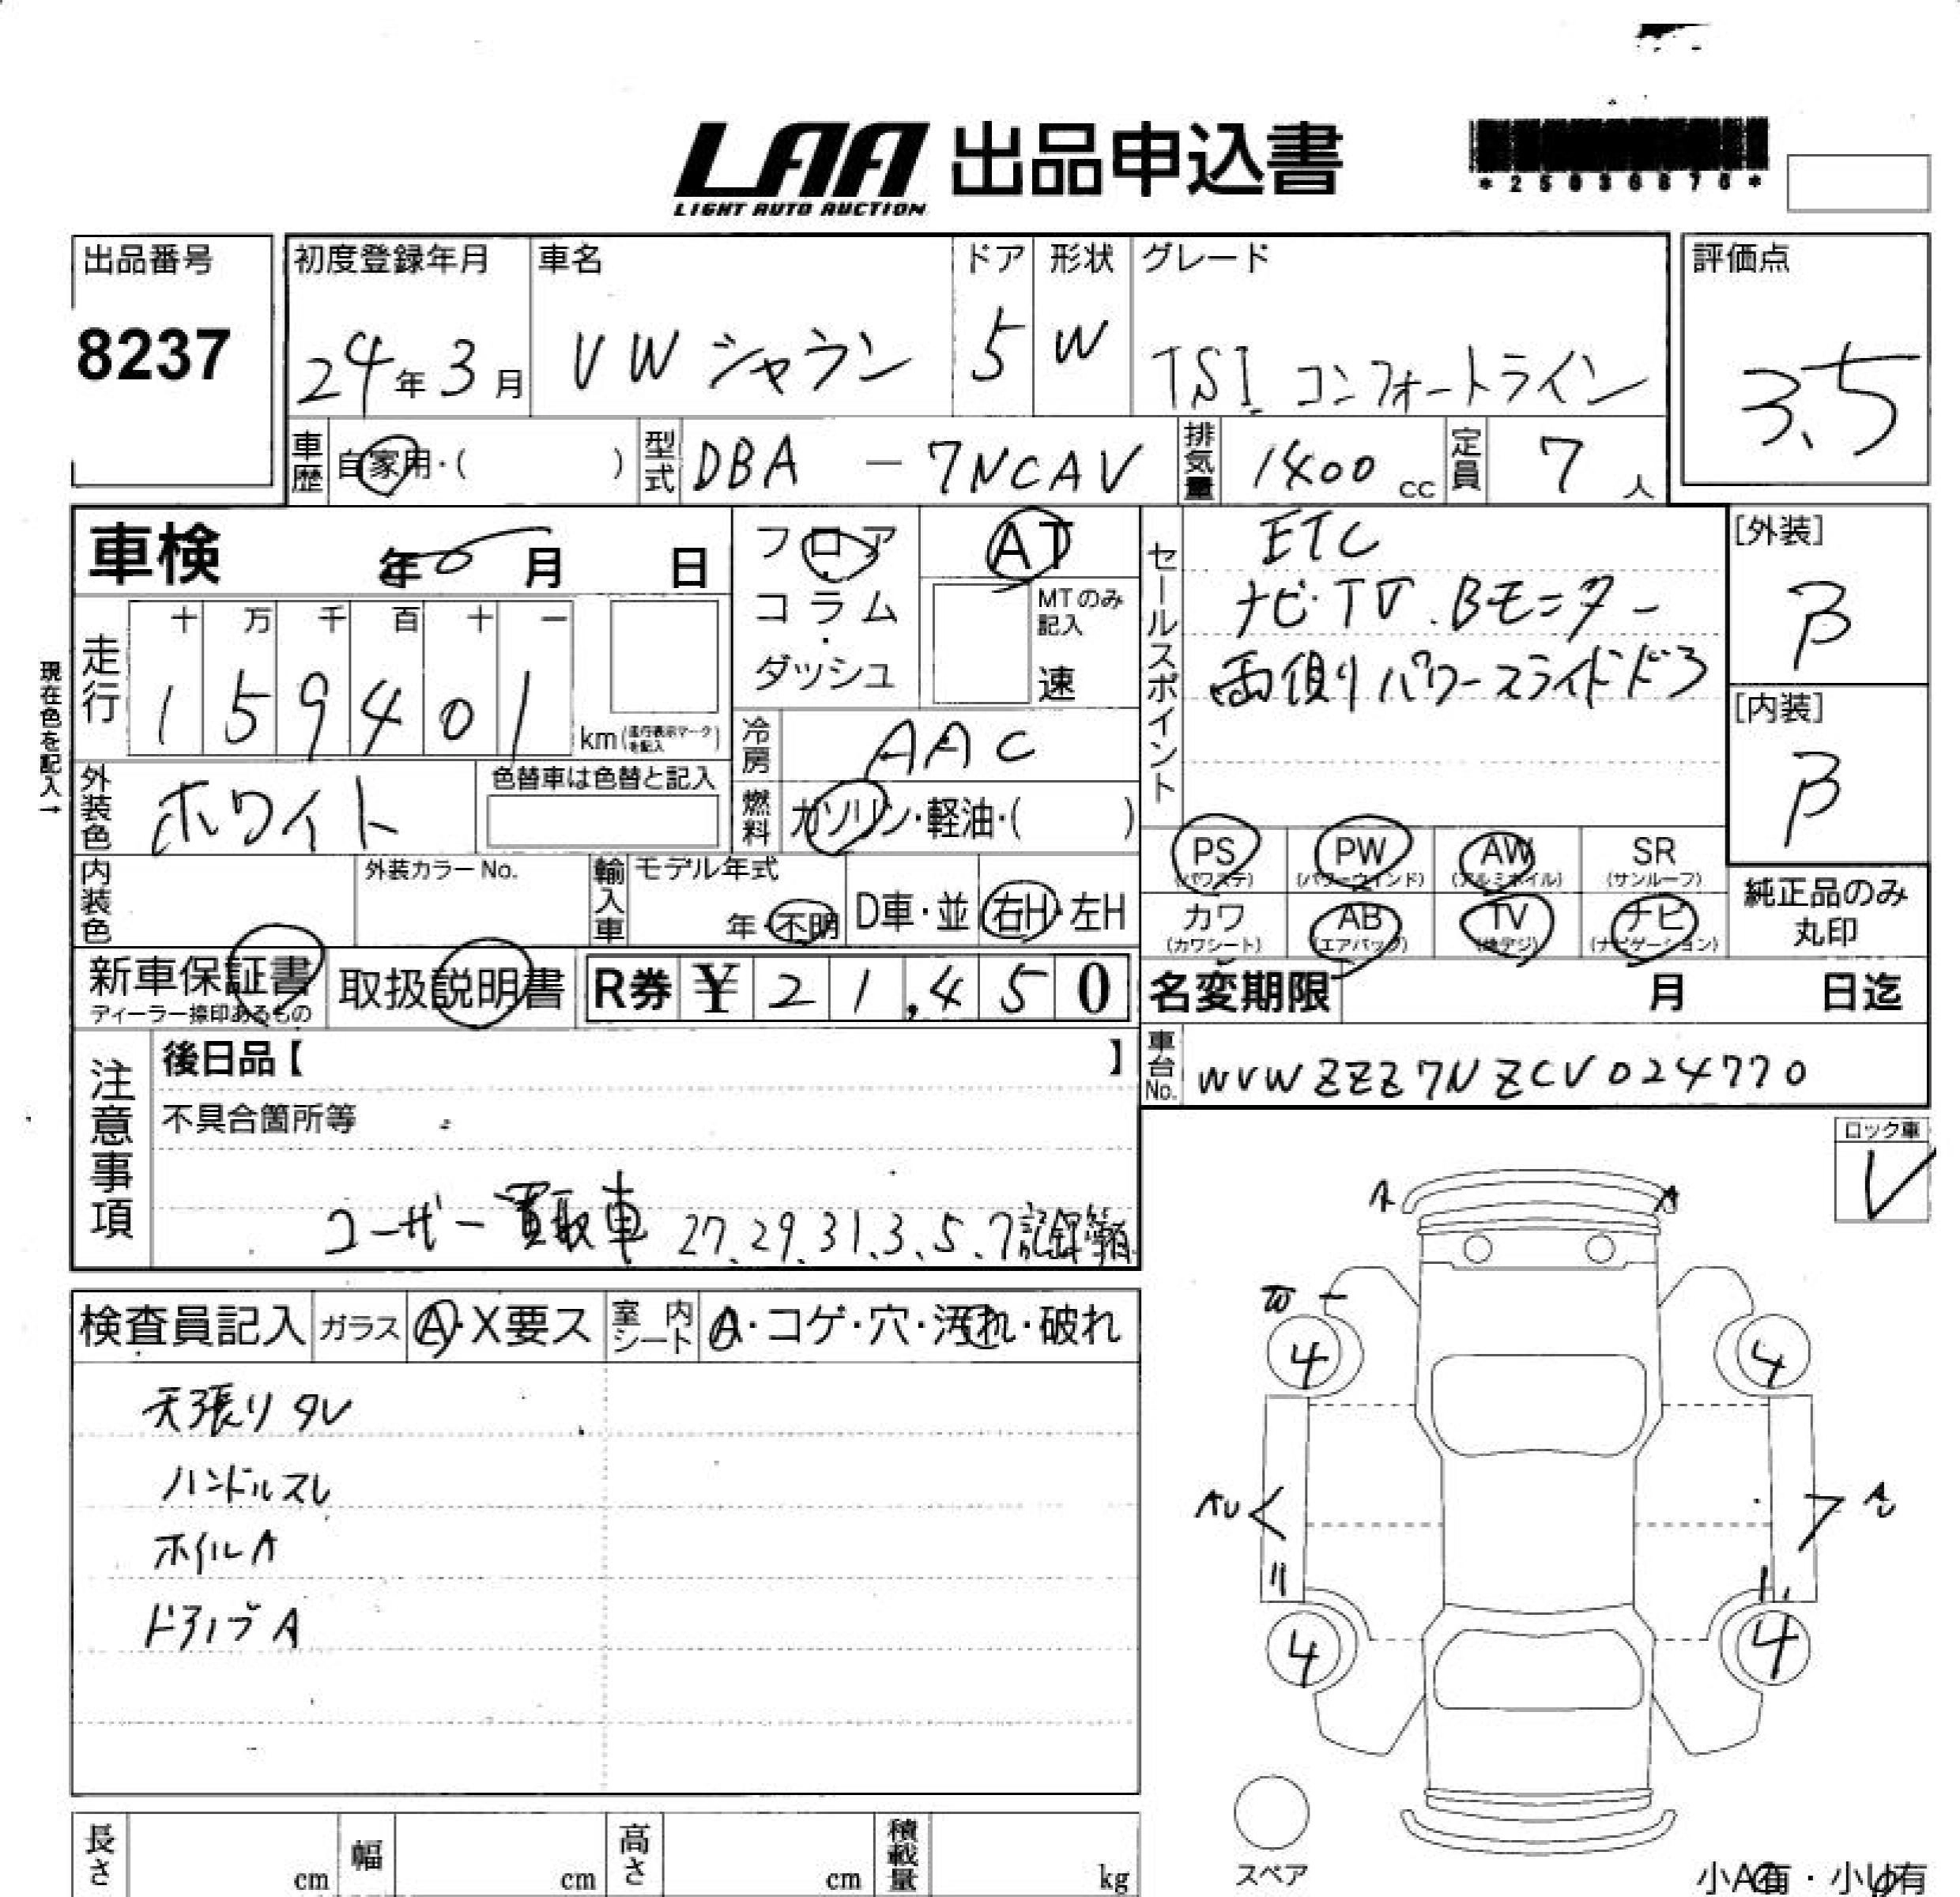 LAA 出品申込書
LIGHT AUTO AUCTION
*25030876*
出品番号
8237
初度登録年月
24年3月
車名
VW シャラン
ドア
5
形状
W
グレード
TSI コンフォートライン
評価点
3.5
車歴
自家用・( )
型式
DBA - 7NCAV
排気量
1400 cc
定員
7 人
車検 年 月 日
フロア・コラム・ダッシュ
AT
MTのみ記入
速
セールスポイント
ETC
ナビ・TV.Bモニター
両側りパワースライドドア
[外装]
B
[内装]
B
現在色を記入→
走行
十 万 千 百 十 一
1 5 9 4 0 1
km(走行表示マークを記入)
冷房
AAC
外装色
ホワイト
色替車は色替と記入
燃料
ガソリン・軽油・( )
PS
(パワステ)
PW
(パワーウインド)
AW
(アルミホイル)
SR
(サンルーフ)
内装色
外装カラーNo.
輸入車
モデル年式
年・不明
D車・並
右H・左H
カワ
(カワシート)
AB
(エアバッグ)
TV
(地デジ)
ナビ
(ナビゲーション)
純正品のみ丸印
新車保証書
ディーラー捺印あるもの
取扱説明書
R券 ¥ 21,450
名変期限 月 日迄
車台No.
WVWZZZ7NZCV024770
注意事項
後日品【 】
不具合箇所等
ユーザー買取車 27.29.31.3.5.7記録簿有
ロック車
レ
検査員記入
ガラス
A・X要ス
室内シート
A・コゲ・穴・汚れ・破れ
天張りタレ
ハンドルスレ
ホイルA
ドアノブA
A
A
W
4
4
AU
A
4
4
スペア
長さ cm
幅 cm
高さ cm
積載量 kg
小A有・小U有